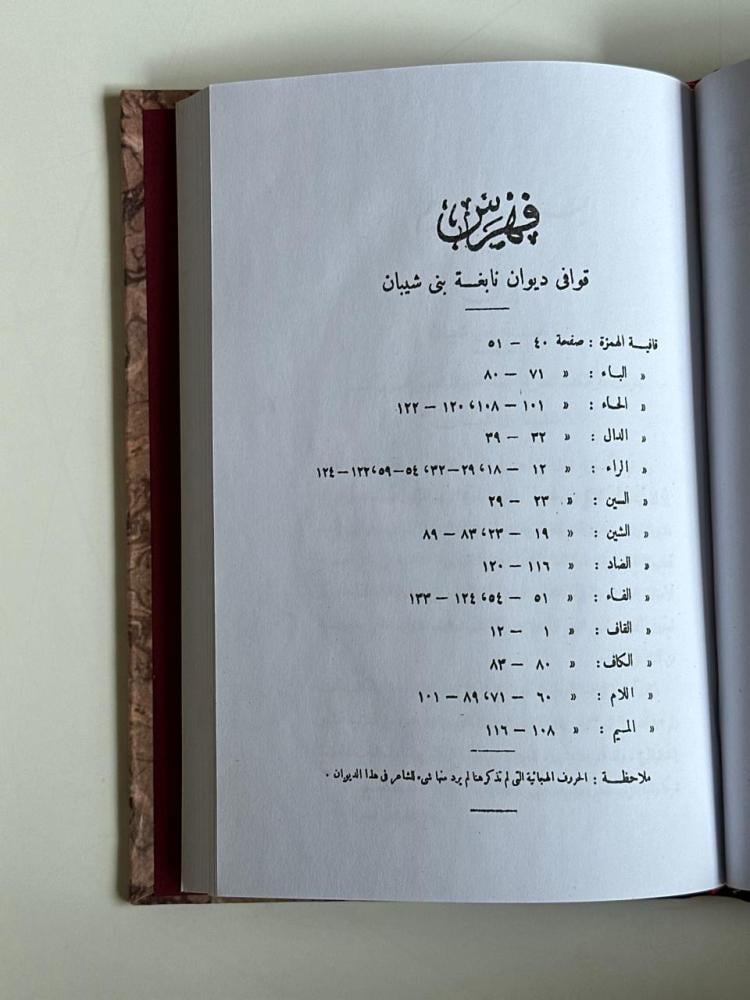 فهرس
قوافى ديوان نابغة بنى شيبان
قافية الهمزة : صفحة ٤٠ — ٥١
« الباء : « ٧١ — ٨٠
« الحاء : « ١٠١ — ١٠٨، ١٢٠ — ١٢٢
« الدال : « ٣٢ — ٣٩
« الراء : « ١٢ — ١٨، ٢٩ — ٣٢، ٥٤ — ٥٩، ١٢٢ — ١٢٤
« السين : « ٢٣ — ٢٩
« الشين : « ١٩ — ٢٣، ٨٣ — ٨٩
« الضاد : « ١١٦ — ١٢٠
« الفاء : « ٥١ — ٥٤، ١٢٤ — ١٣٣
« القاف : « ١ — ١٢
« الكاف : « ٨٠ — ٨٣
« اللام : « ٦٠ — ٧١، ٨٩ — ١٠١
« الميم : « ١٠٨ — ١١٦
ملاحظة : الحروف الهجائية التى لم تذكر هنا لم يرد منها شىء للشاعر فى هذا الديوان .